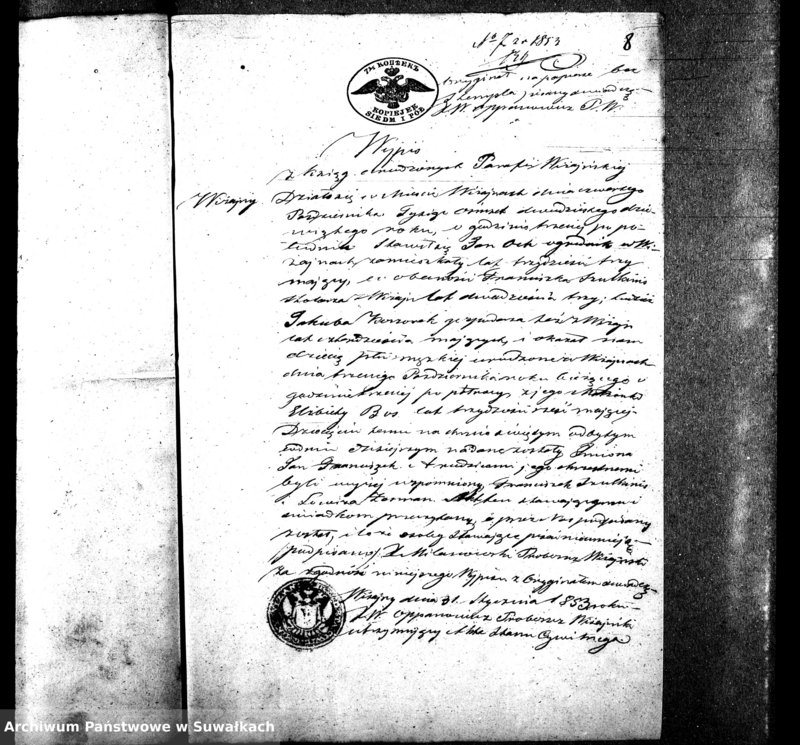 N° 7 zr 1853
8
7½ КОПѢЕКЪ
KOPIEJEK
SIEDM I PÓŁ
oryginał na papierze bez
X W. Oppanowicz P. W.
Wypis
z Xsiąg urodzonych Parafii Wiżajńskiej
Wiżajny.
Działo się w Mieście Wiżajnach dnia czwartego
Października Tysiąc ośmset dwudziestego dzie-
wiątego roku, o godzinie trzeciej po po-
łudniu Stawił się Jan Och ogrodnik w Wi-
żajnach zamieszkały lat trzydzieści trzy
mający, w obecności Franciszka Szulkinis
Stolarza z Wiżajn lat dwadzieścia trzy, tudzież
Jakuba też z Wiżajn
lat czterdzieścia mających, i okazał nam
dziecię płci męskiej urodzone w Wiżajnach
dnia trzeciego Października roku bieżącego o
godzinie trzeciej po północy, z jego Małżonki
Elżbiety Bos lat trzydzieści sześć mającej
Dziecięciu temu na chrzcie świętym odbytym
w dniu dzisiejszym nadane zostały Imiona
Jan Franciszek i rodzicami jego chrzestnemi
byli wyżej wspomniony Franciszek Szulkinis
i Lowiza Herman. Akt ten stawającemu i
świadkom przeczytany, przez Nas podpisany
został, ile że osoby stawające pisać nieumieją
(podpisano) X Milanowski Proboszcz Wiżajński
Za zgodność niniejszego Wypisu z Oryginałem świadczę
Wiżajny dnia 31. Stycznia 1853 roku
X W. Oppanowicz Proboszcz Wiżajński
utrzymujący Akta Stanu Cywilnego
Archiwum Państwowe w Suwałkach